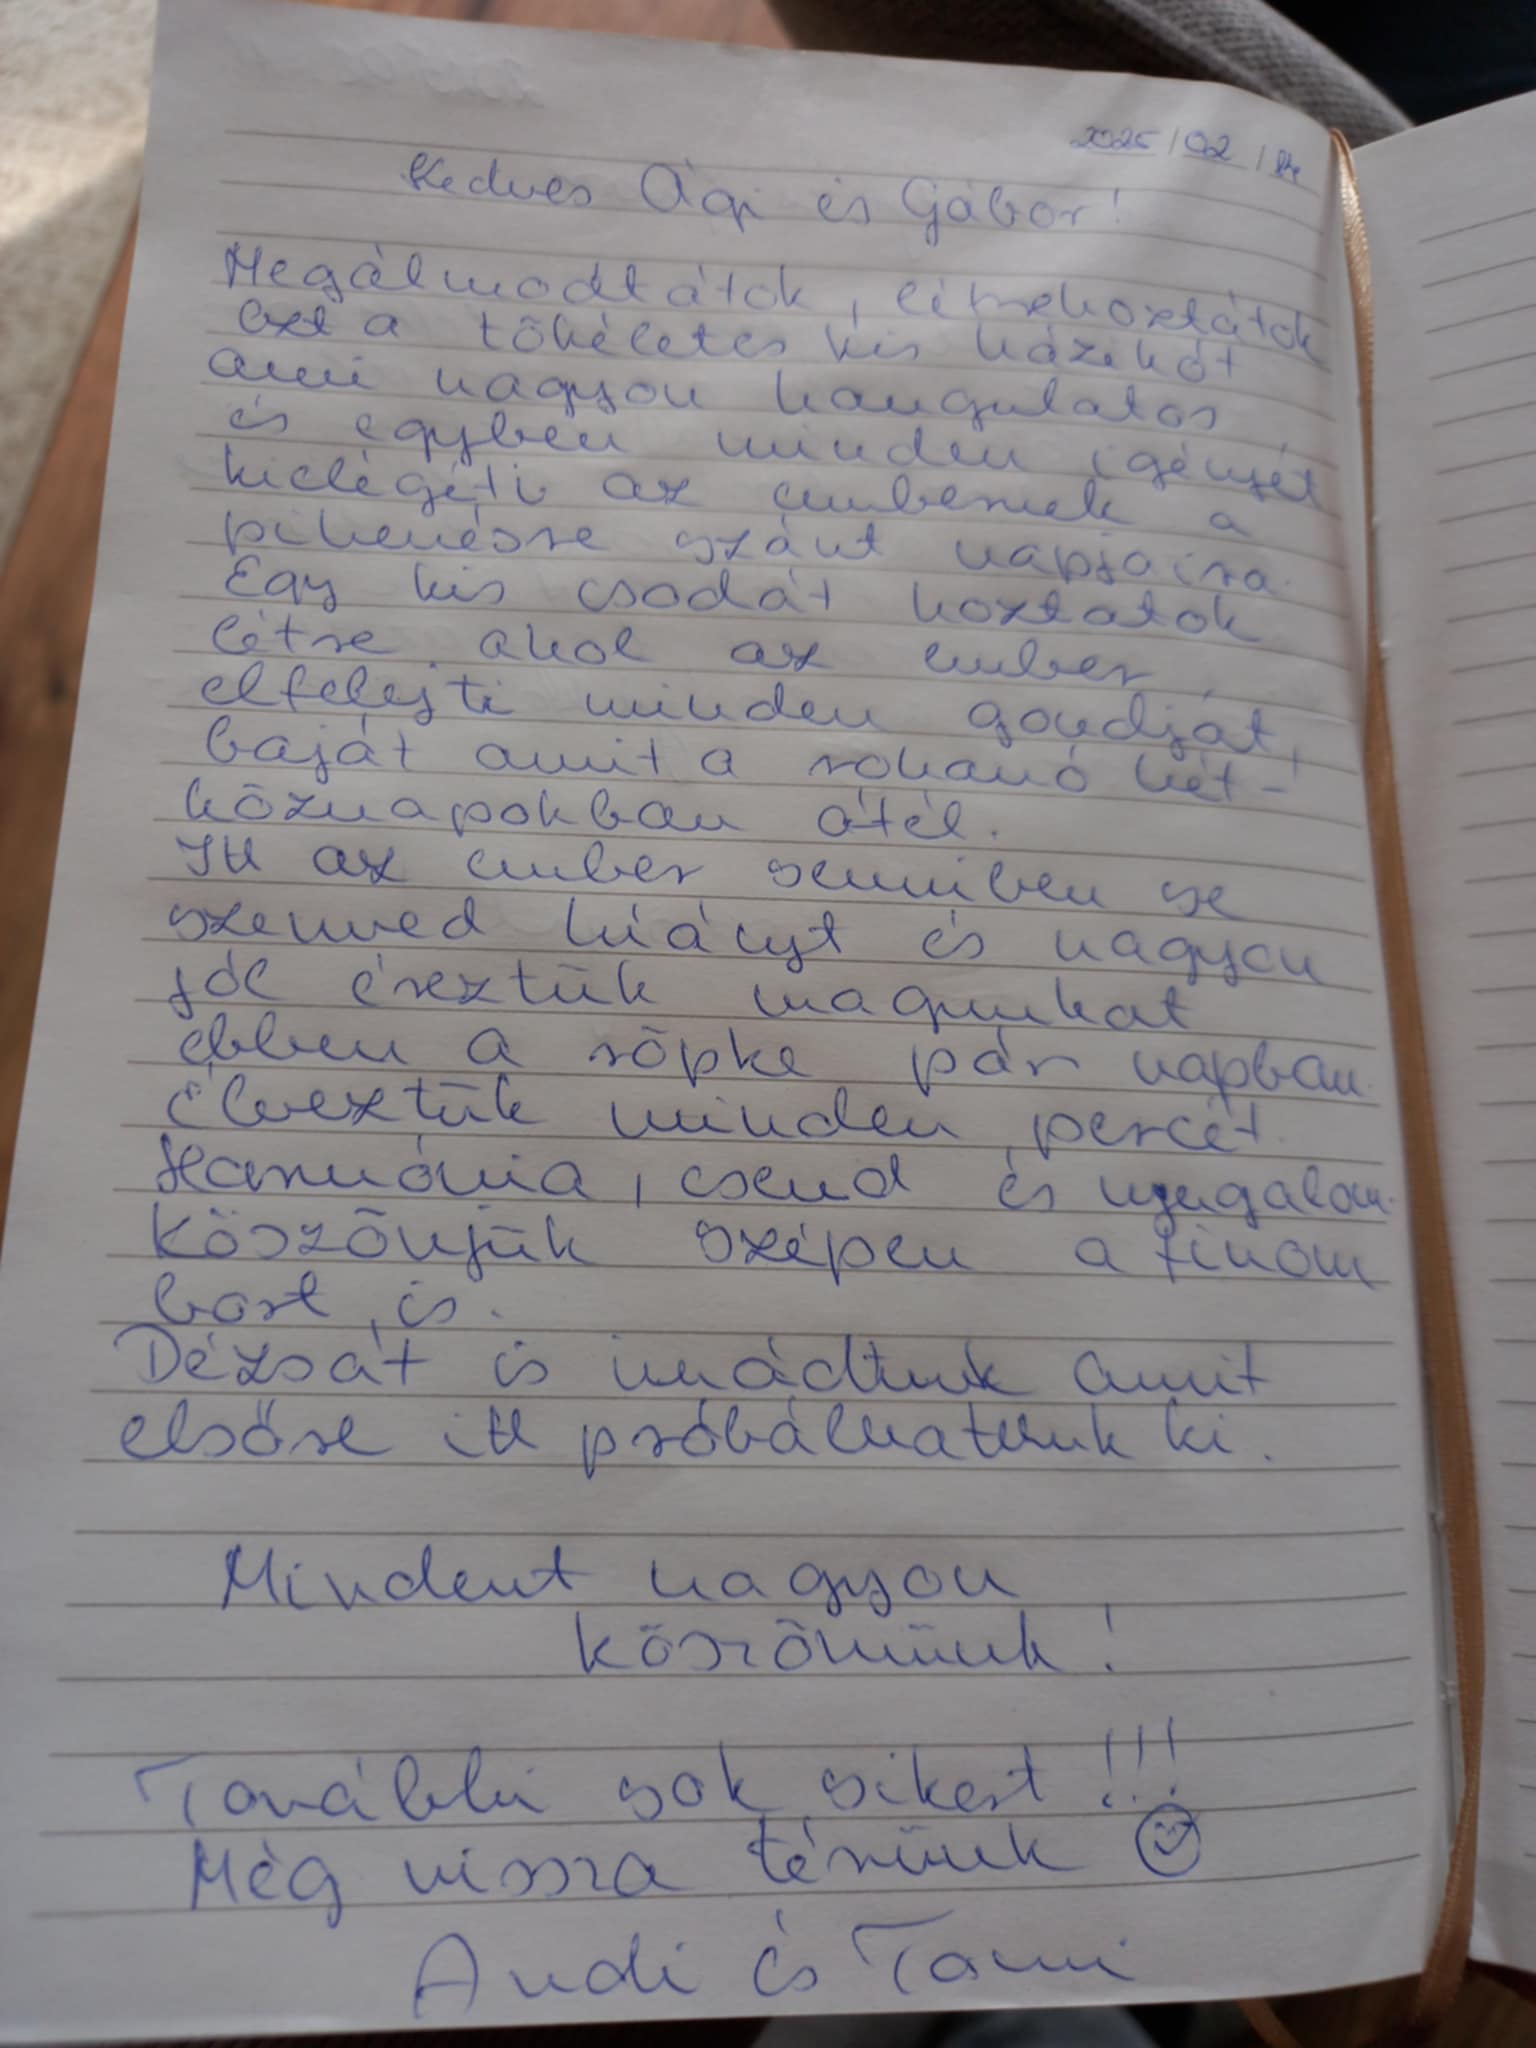 2025/02/
Kedves Ági és Gábor!
Megálmodtátok, létrehoztátok
ezt a tökéletes kis házikót
ami nagyon hangulatos
és egyben minden igényét
kielégíti az embernek a
pihenésre szánt napjaira.
Egy kis csodát hoztatok
létre, ahol az ember
elfelejti minden gondját,
baját amit a rohanó hét-
köznapokban átél.
Itt az ember semmiben se
szenved hiányt és nagyon
jól éreztük magunkat
ebben a röpke pár napban.
Élveztük minden percét.
Harmónia, csend és nyugalom.
Köszönjük szépen a finom
bort is.
Dézsát is imádtuk amit
elsőre itt próbálhattunk ki.
Mindent nagyon
köszönünk!
További sok sikert!!!
Még vissza térünk ☺
Andi és Tomi